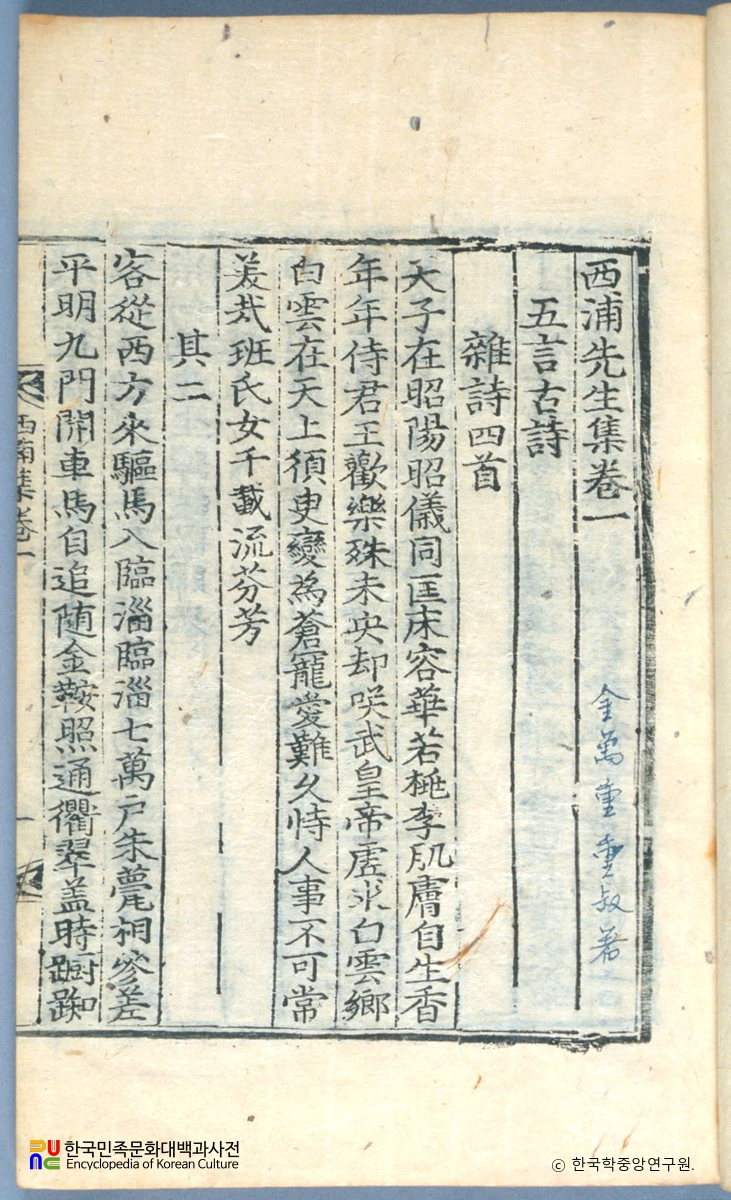 西浦先生集卷一
金萬重重叔著
五言古詩
雜詩四首
天子在昭陽昭儀同匡床容華若秾李肌膚自生香
年年侍君王歡樂殊未央却咲武皇帝虛求白雲鄉
白雲在天上須臾變為蒼寵愛難久恃人事不可常
美哉班氏女千載流芬芳
其二
客從西方來驅馬入臨淄臨淄七萬戶朱甍相參差
平明九門開車馬自追随金鞍照通衢翠盖時踟躕
西浦集卷一
한국민족문화대백과사전
Encyclopedia of Korean Culture
© 한국학중앙연구원.